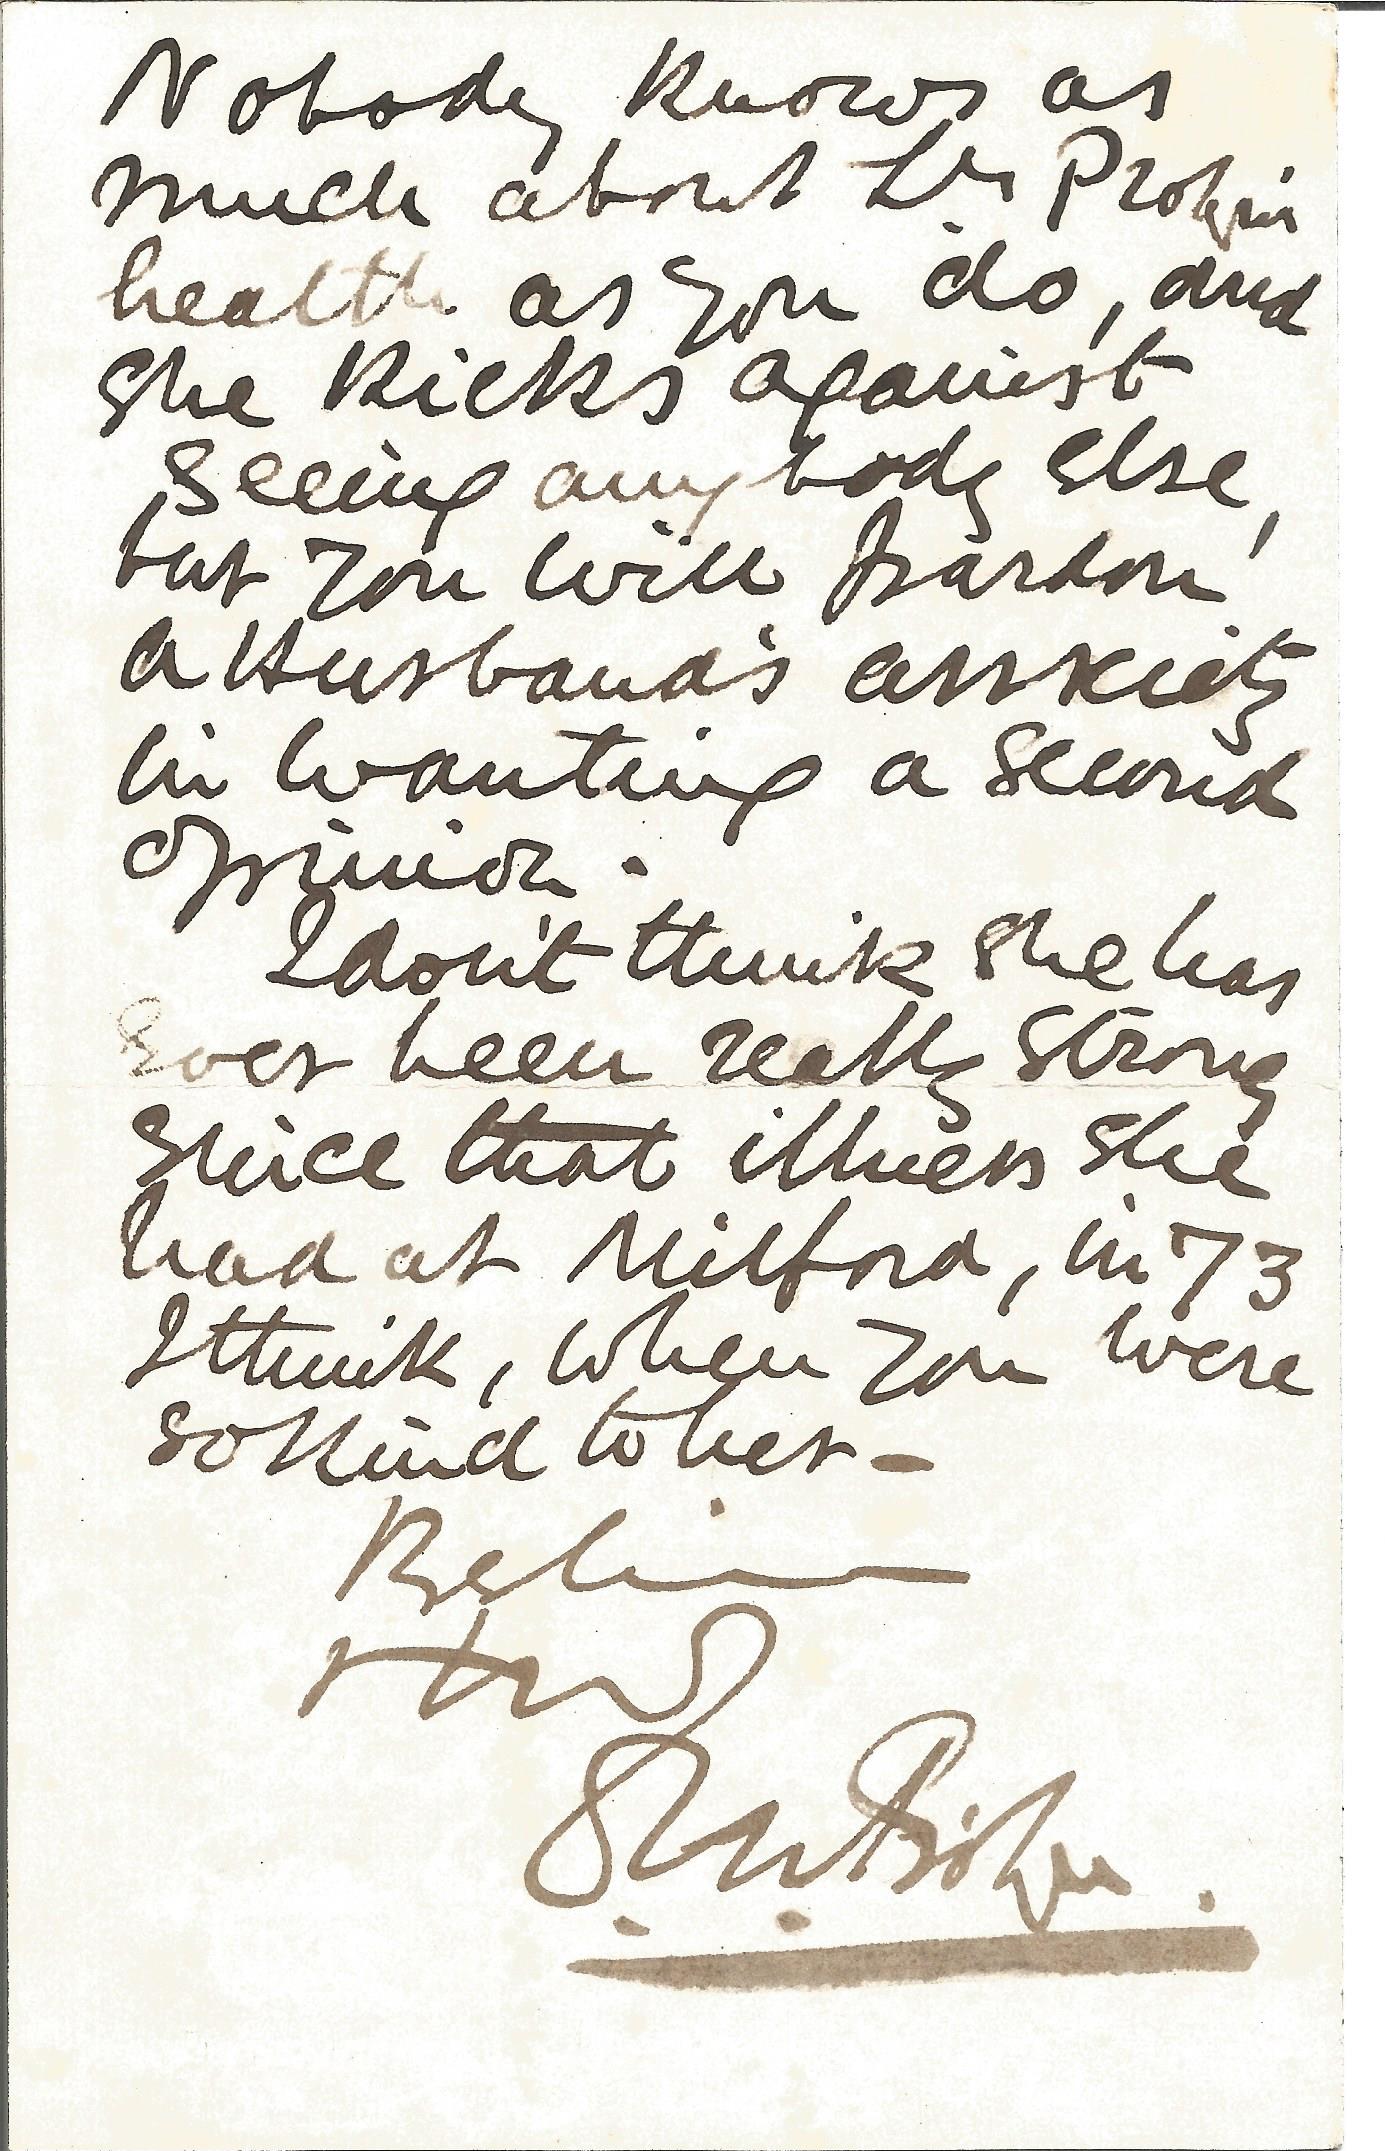 Nobody knows as
much about Ly Probyn's
health as you do, and
she kicks against
seeing anybody else,
but you will pardon
a Husband's anxiety
in wanting a second
opinion.
I don't think she has
ever been really strong
since that illness she
had at Milford, in 73
I think, when you were
so kind to her –
Probyn.